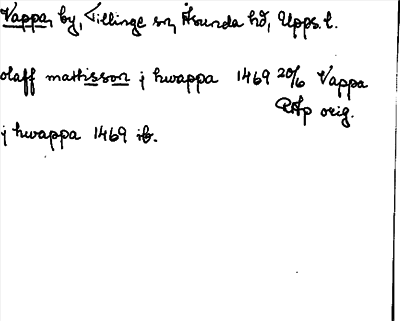 Vappa, by, Tillinge sn, Åsunda hd, Upps. l.
olaff mattisson j hwappa 1469 20/6 Vappa
RAp orig.
j hwappa 1469 ib.